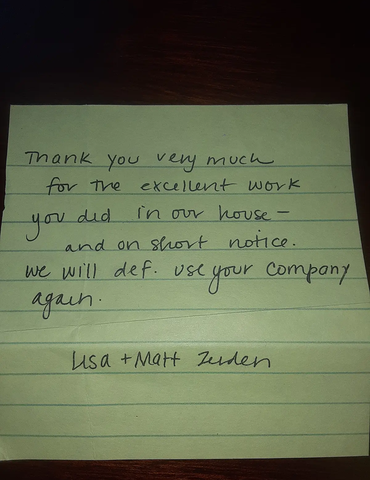 Thank you very much
for the excellent work
you did in our house -
and on short notice.
we will def. use your company
again.
Lisa + Matt